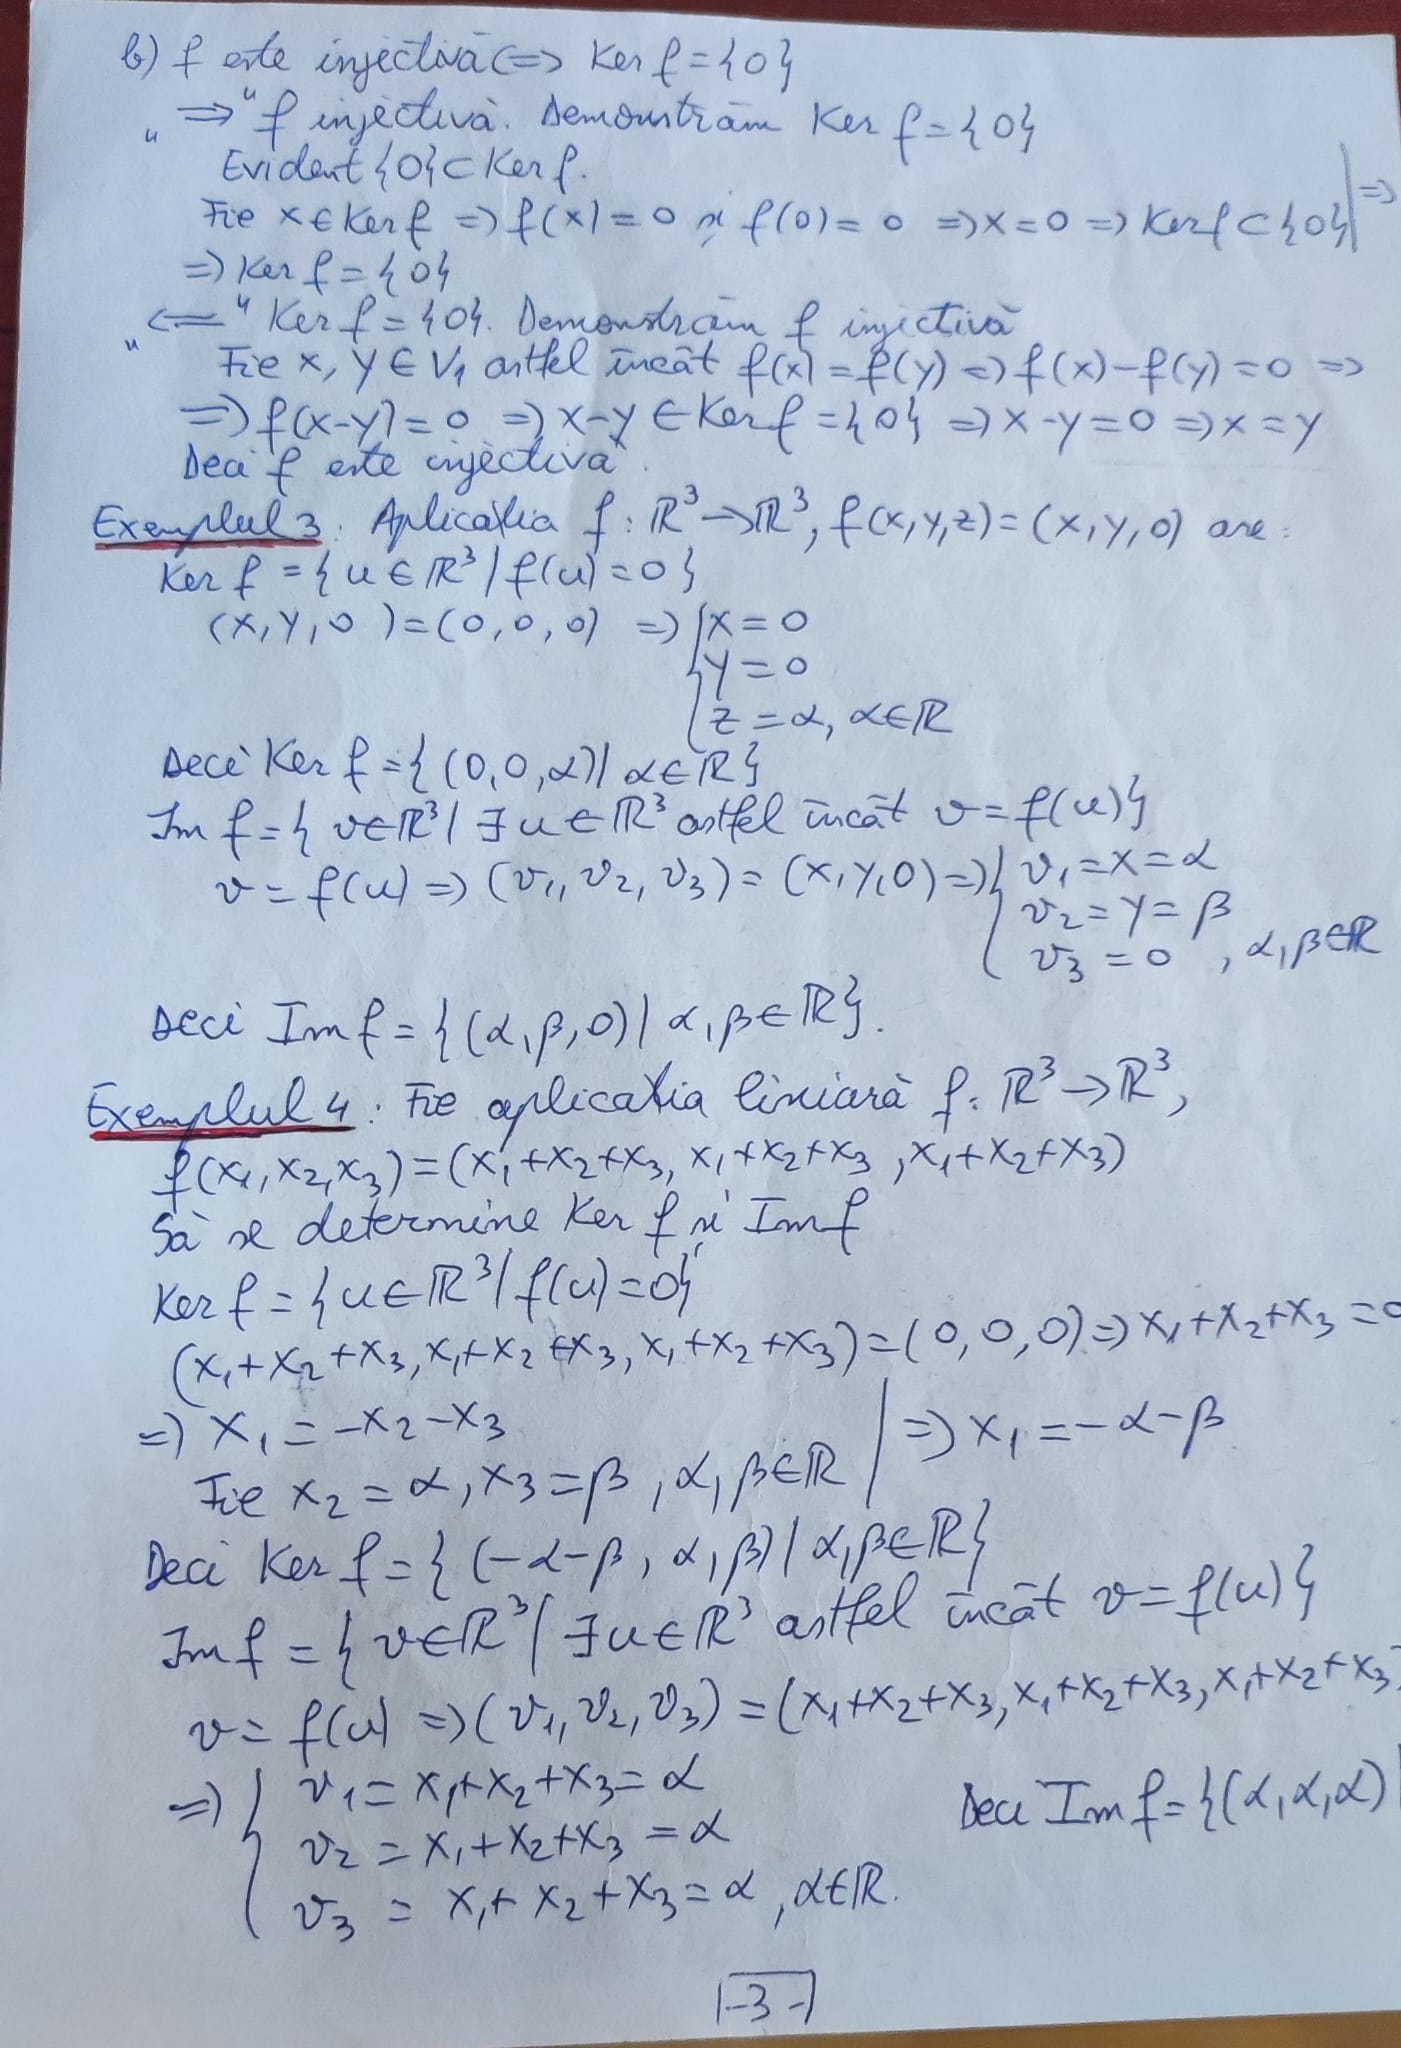 b) f este injectivă <=> Ker f = {0}
„=>" f injectivă. Demonstrăm Ker f = {0}
Evident {0} ⊂ Ker f.
Fie x ∈ Ker f => f(x) = 0 și f(0) = 0 => x = 0 => Ker f ⊂ {0} | =>
=> Ker f = {0}
„<=" Ker f = {0}. Demonstrăm f injectivă
Fie x, y ∈ V₁ astfel încât f(x) = f(y) => f(x) - f(y) = 0 =>
=> f(x-y) = 0 => x-y ∈ Ker f = {0} => x-y = 0 => x = y
Deci f este injectivă.
Exemplul 3: Aplicația f: ℝ³ → ℝ³, f(x, y, z) = (x, y, 0) are:
Ker f = {u ∈ ℝ³ / f(u) = 0}
(x, y, 0) = (0, 0, 0) => { x = 0
y = 0
z = α, α ∈ ℝ
Deci Ker f = {(0, 0, α) | α ∈ ℝ}
Im f = {v ∈ ℝ³ | ∃ u ∈ ℝ³ astfel încât v = f(u)}
v = f(u) => (v₁, v₂, v₃) = (x, y, 0) => { v₁ = x = α
v₂ = y = β
v₃ = 0, α, β ∈ ℝ
Deci Im f = {(α, β, 0) | α, β ∈ ℝ}.
Exemplul 4: Fie aplicația liniară f: ℝ³ → ℝ³,
f(x₁, x₂, x₃) = (x₁+x₂+x₃, x₁+x₂+x₃, x₁+x₂+x₃)
Să se determine Ker f și Im f
Ker f = {u ∈ ℝ³ | f(u) = 0}
(x₁+x₂+x₃, x₁+x₂+x₃, x₁+x₂+x₃) = (0, 0, 0) => x₁+x₂+x₃ = 0
=> x₁ = -x₂-x₃
Fie x₂ = α, x₃ = β, α, β ∈ ℝ | => x₁ = -α-β
Deci Ker f = {(-α-β, α, β) | α, β ∈ ℝ}
Im f = {v ∈ ℝ³ / ∃ u ∈ ℝ³ astfel încât v = f(u)}
v = f(u) => (v₁, v₂, v₃) = (x₁+x₂+x₃, x₁+x₂+x₃, x₁+x₂+x₃)
=> { v₁ = x₁+x₂+x₃ = α
v₂ = x₁+x₂+x₃ = α
v₃ = x₁+x₂+x₃ = α, α ∈ ℝ.
Deci Im f = {(α, α, α) |
-3-